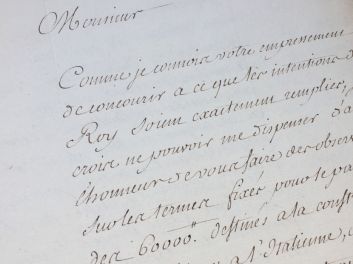 Monsieur
Comme je connois votre empressement
de concourir a ce que les intentions d
Roy soient exactement remplies,
crois ne pouvoir me dispenser d'a
l'honneur de vous faire des observ
sur les termes fixés pour le pa
des 60000tt destinés a la const
a l'Italienne,